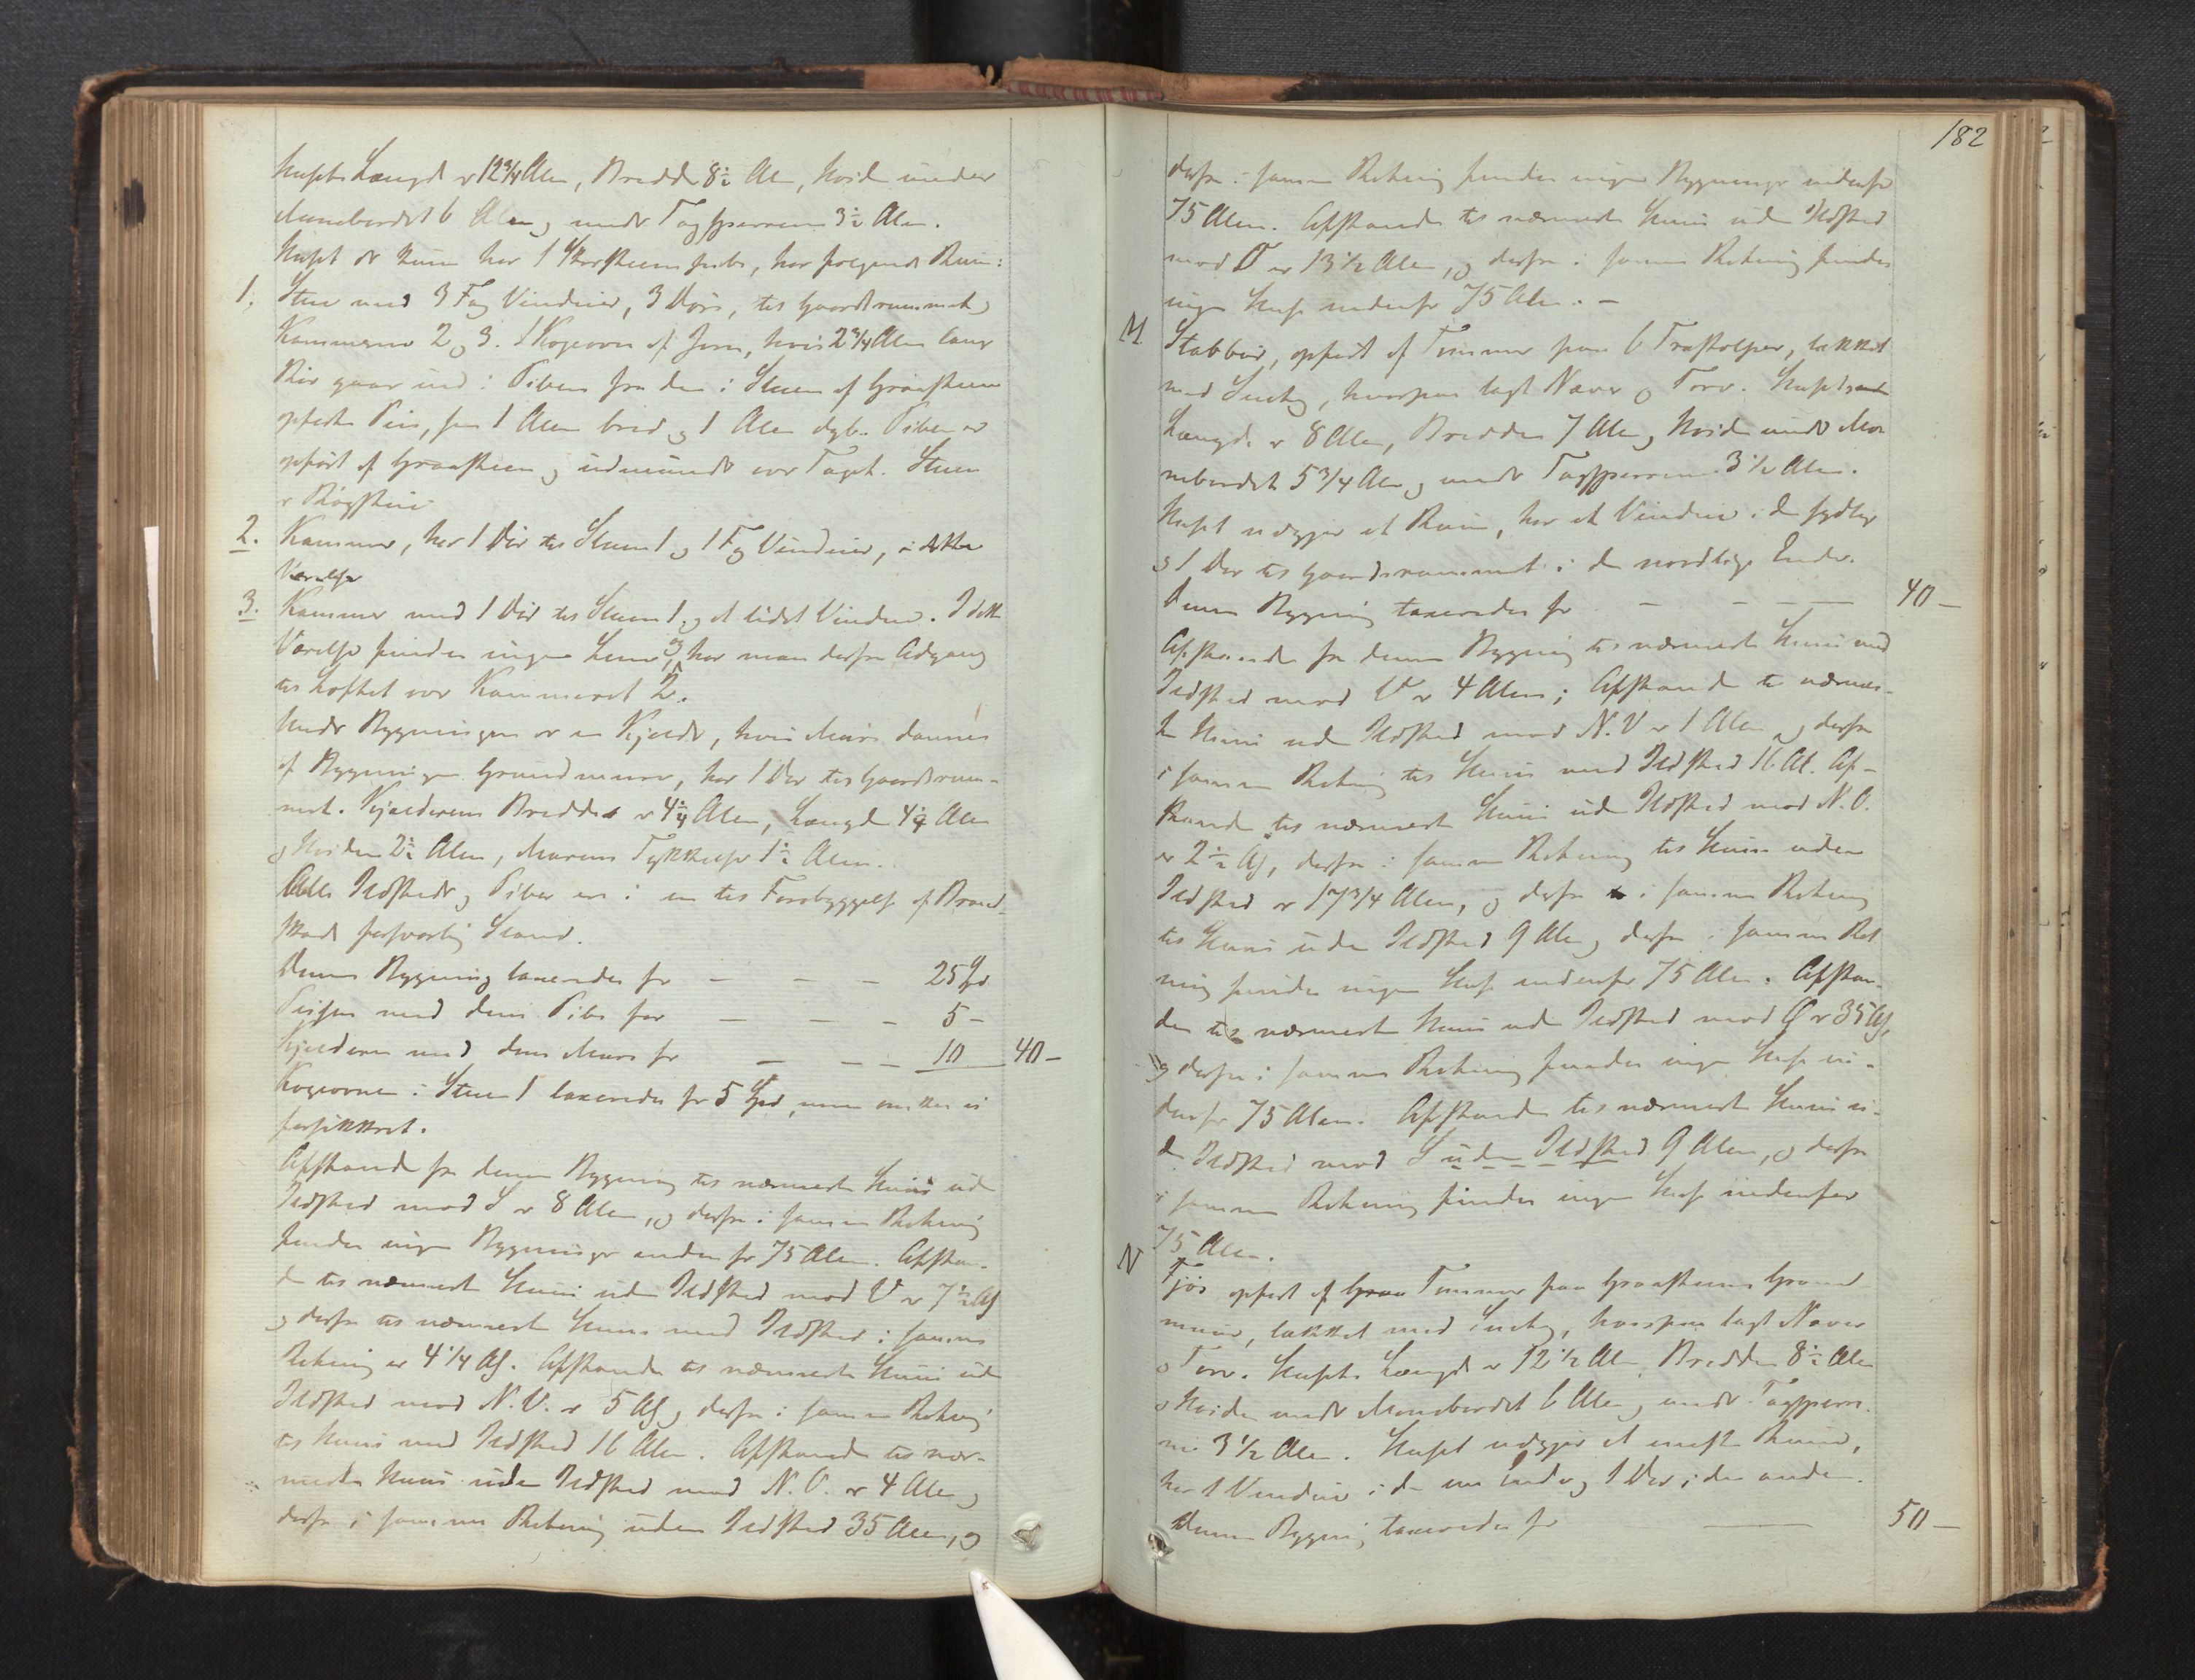 Husets Længde er 12 3/4 Alen, Bredde 8 1/2 Alen, Høide under
Mønebordet 6 Alen og under Tagsperrerne 3 1/2 Alen.
Huset der kun har 1 Skorsteenspibe, har følgende Rum:
1. Stue med 3 Fag Vinduer, 3 Døre, til Gaardsrummet og
Kammerne 2 og 3. 1 Kogeovn af Jern, hvis 2 3/4 Alen lange
Rør gaar ind i Piben fra den i Stuen af Graasteen
opførte Peis, som 1 Alen bred og 1 Alen dyb. Piben er
opført af Graasteen og udmunder over Taget. Stuen
er
2. Kammer, har 1 Dør til Stuen 1 og 1 Fag Vinduer, i dette
Værelse
3. Kammer med 1 Dør til Stuen 1 og et lidet Vindue. I dette
Værelse findes ingen Lem og har man derfra Adgang
til Loftet over Kammeret 2.
Under Bygningen er en Kjelder, hvis Mure dannes
af Bygningens Grundmure, har 1 Dør til Gaardsrum-
met. Kjelderens Bredde er 4 1/4 Alen, Længde 4 1/4 Alen
og Høiden 2 1/2 Alen, Murens Tykkelse 1 1/2 Alen.
Alle Ildsteder og Piber ere i en til Forebyggelse af Brand-
skade forsvarlig Stand.
Denne Bygning taxeredes for — — — 25 Spd
Peisen med dens Pibe for — — — 5 -
Kjelderen med dens Mure for — — — 10 40 —
Kogeovnen i Stuen 1 taxeredes for 5 Spd, men ønskes ei
forsikkret.
Afstanden fra denne Bygning til nærmeste Huus uden
Ildsted mod S er 8 Alen, og derfra i samme Retning
findes ingen Bygninger inden for 75 Alen. Afstan-
den til nærmeste Huus uden Ildsted mod V er 7 1/2 Al
og derfra til nærmeste Huus med Ildsted i samme
Retning er 4 1/4 Al. Afstanden til nærmeste Huus uden
Ildsted mod N.V. er 5 Al og derfra i samme Retning
til Huus med Ildsted 16 Alen. Afstanden til nær-
meste Huus uden Ildsted mod N.O. er 4 Alen og
derfra i samme Retning uden Ildsted 35 Alen, og
182
derfra i samme Retning findes ingen Bygninger indenfor
75 Alen. Afstanden til nærmeste Huus uden Ildsted
mod O er 13 1/2 Alen, og derfra i samme Retning findes
ingen Huse indenfor 75 Alen. —
M Stabbur, opført af Tømmer paa 6 Træstolper, tækket
med Suetag, hvorpaa lagt Næver og Torv. Husets
Længde er 8 Alen, Bredden 7 Alen og Høiden under Mø-
nebordet 5 3/4 Alen og under Tagsperrerne 3 1/2 Alen.
Huset udgjør et Rum, har et Vindue i den sydlige
og 1 Dør til Gaardsrummet i den nordlige Ende.
Denne Bygning taxeredes for — — — — 40 —
Afstanden fra denne Bygning til nærmeste Huus med
Ildsted mod V er 4 Alen; Afstanden til nærmes-
te Huus uden Ildsted mod N.V er 1 Alen og derfra
i samme Retning til Huus med Ildsted 16 Al. Af-
standen til nærmeste Huus uden Ildsted mod N.O.
er 2 1/2 Al, derfra i samme Retning til Huus uden
Ildsted er 17 3/4 Alen, og derfra i samme Retning
til Huus uden Ildsted 9 Alen og derfra i samme Ret
ning findes ingen Huse indenfor 75 Alen. Afstan-
den til nærmeste Huus uden Ildsted mod O er 35 Al,
og derfra i samme Retning findes ingen Huse in-
denfor 75 Alen. Afstanden til nærmeste Huus u-
den Ildsted mod S uden Ildsted 9 Alen, og derfra
i samme Retning findes ingen Huse indenfor
75 Alen.
N Fjøs opført af Graa Tømmer paa Graasteens Grund
muur, tækket med Suetag, hvorpaa lagt Næver
og Torv. Husets Længde er 12 1/2 Alen, Bredden 8 1/2 Alen
og Høiden under Mønebordet 6 Alen og under Tagsperrer-
ne 3 1/2 Alen. Huset udgjør et eneste Rum,
har 1 Vindue i den ene Ende og 1 Dør i den anden.
Denne Bygning taxeredes for — 50 —